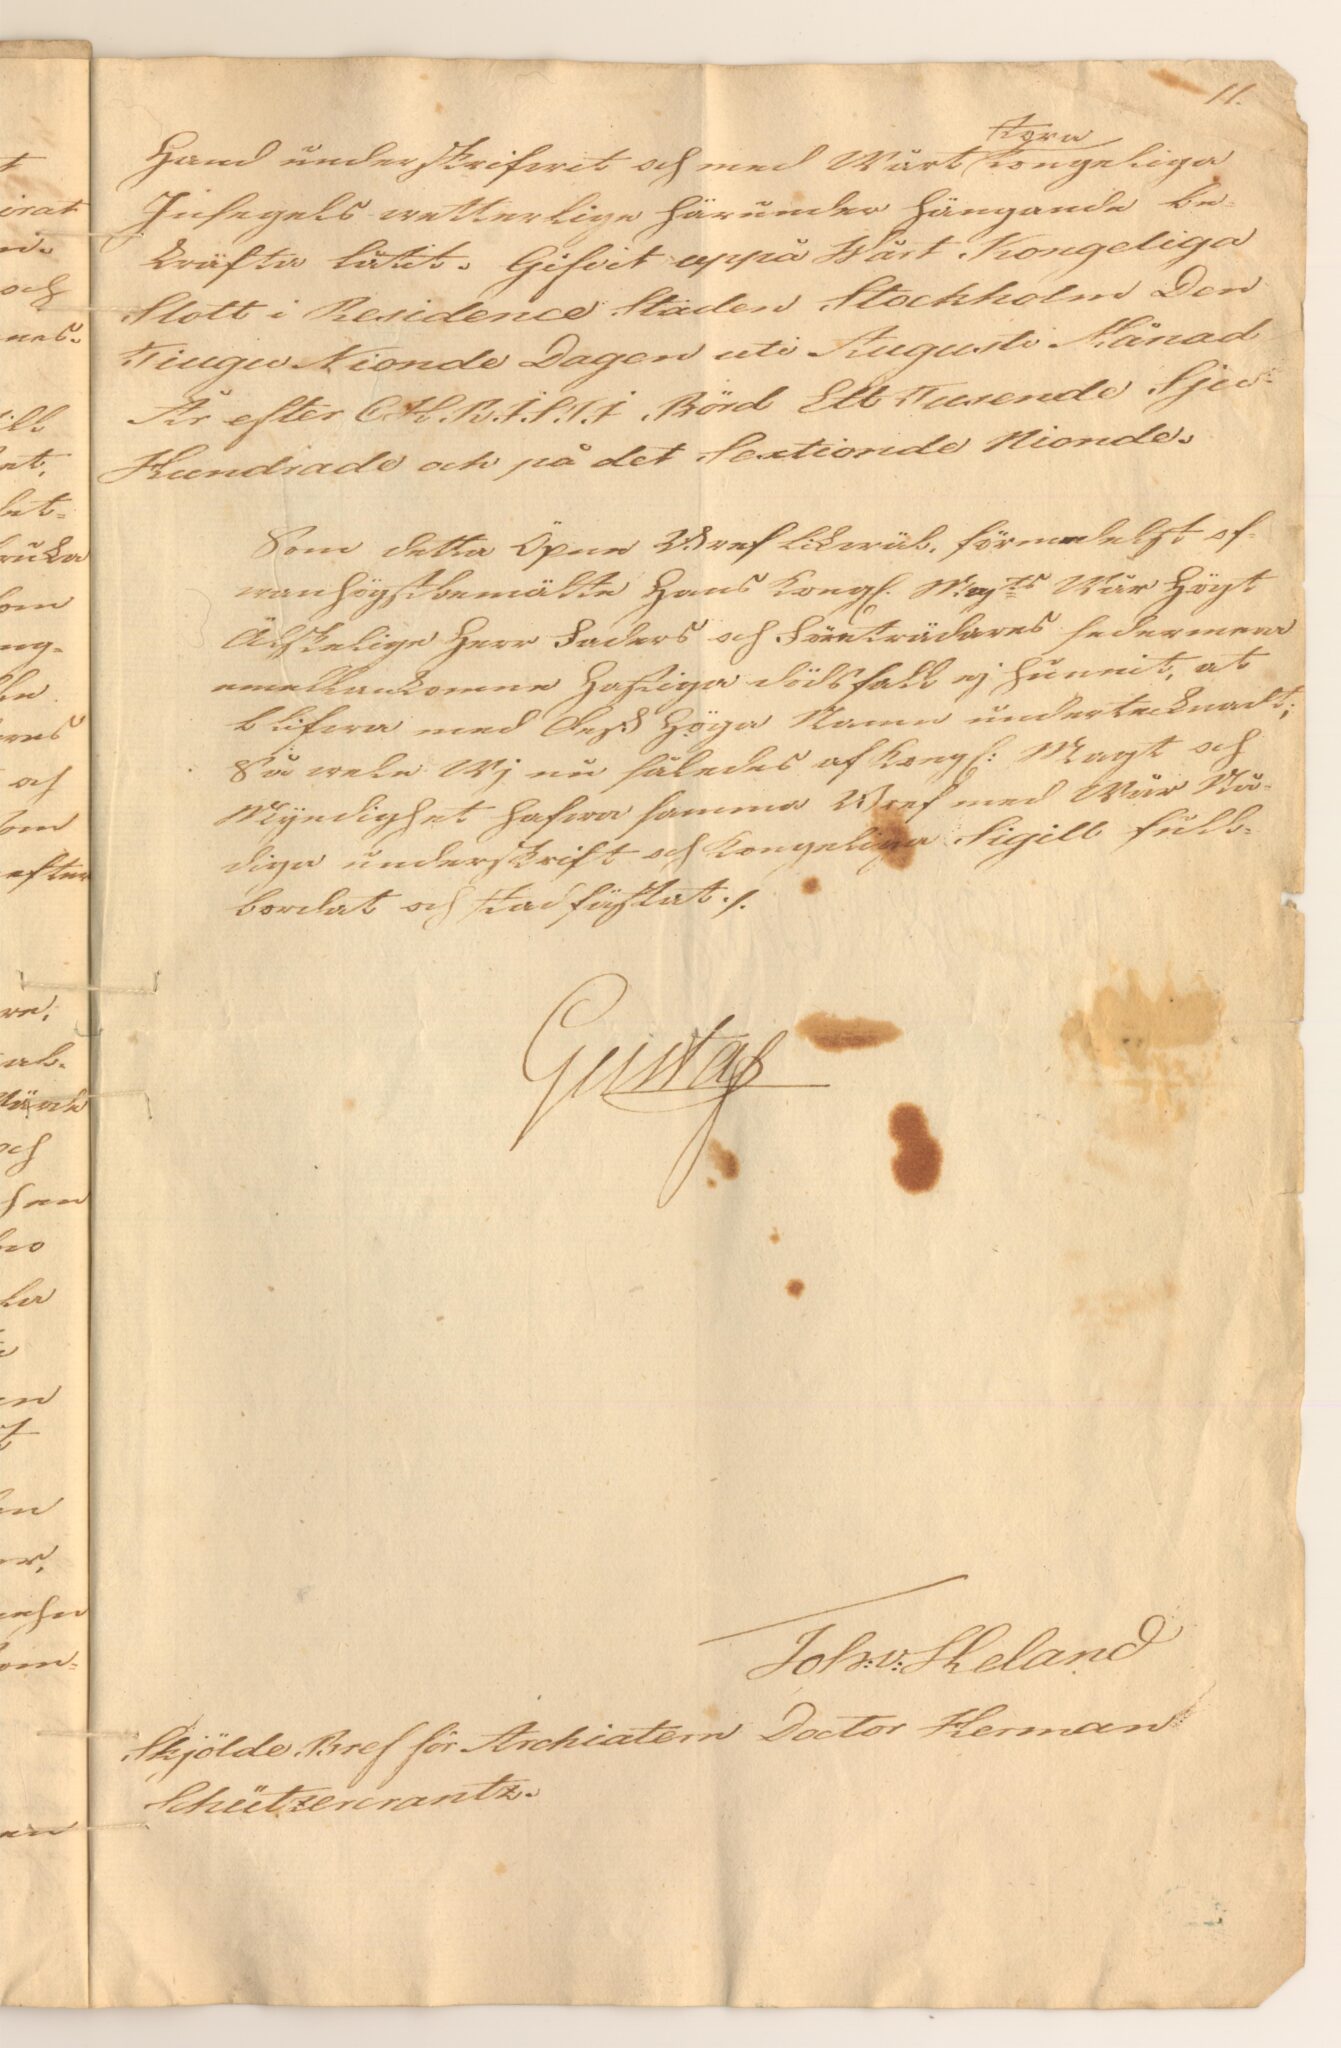 11.
Stora
Hand underskrifwit och med Wårt Kongeliga
Insegels wetterlige härunder hängande be-
kräfta låtit. Gifvit uppå Wårt Kongeliga
Slott i Residence Staden Stockholm Den
Tiugu Nionde Dagen uti Augusti Månad
År efter CHRISTI Börd Ett Tusende Sju-
Hundrade och på det Sextionde Nionde.
Som detta Öpne Bref likwäl, förmedelst of-
wanhögstbemälte Hans Kongl. Maj:ts Wår Högt
Älskelige Herr Faders och Företrädares sedermera
emellankomne hastiga dödsfall ej hunnit, at
blifwa med Dess Höga Namn undertecknadt;
Så wele Wj nu således af Kongl: Magt och
Myndighet hafwa samma Bref med Wår Nå-
diga underskrift och Kongeliga Sigill full-
bordat och stadfästat ./.
Gustaf
Joh: v: Heland
Skjölde Bref för Archiatern Doctor Herman
Schützercrantz.